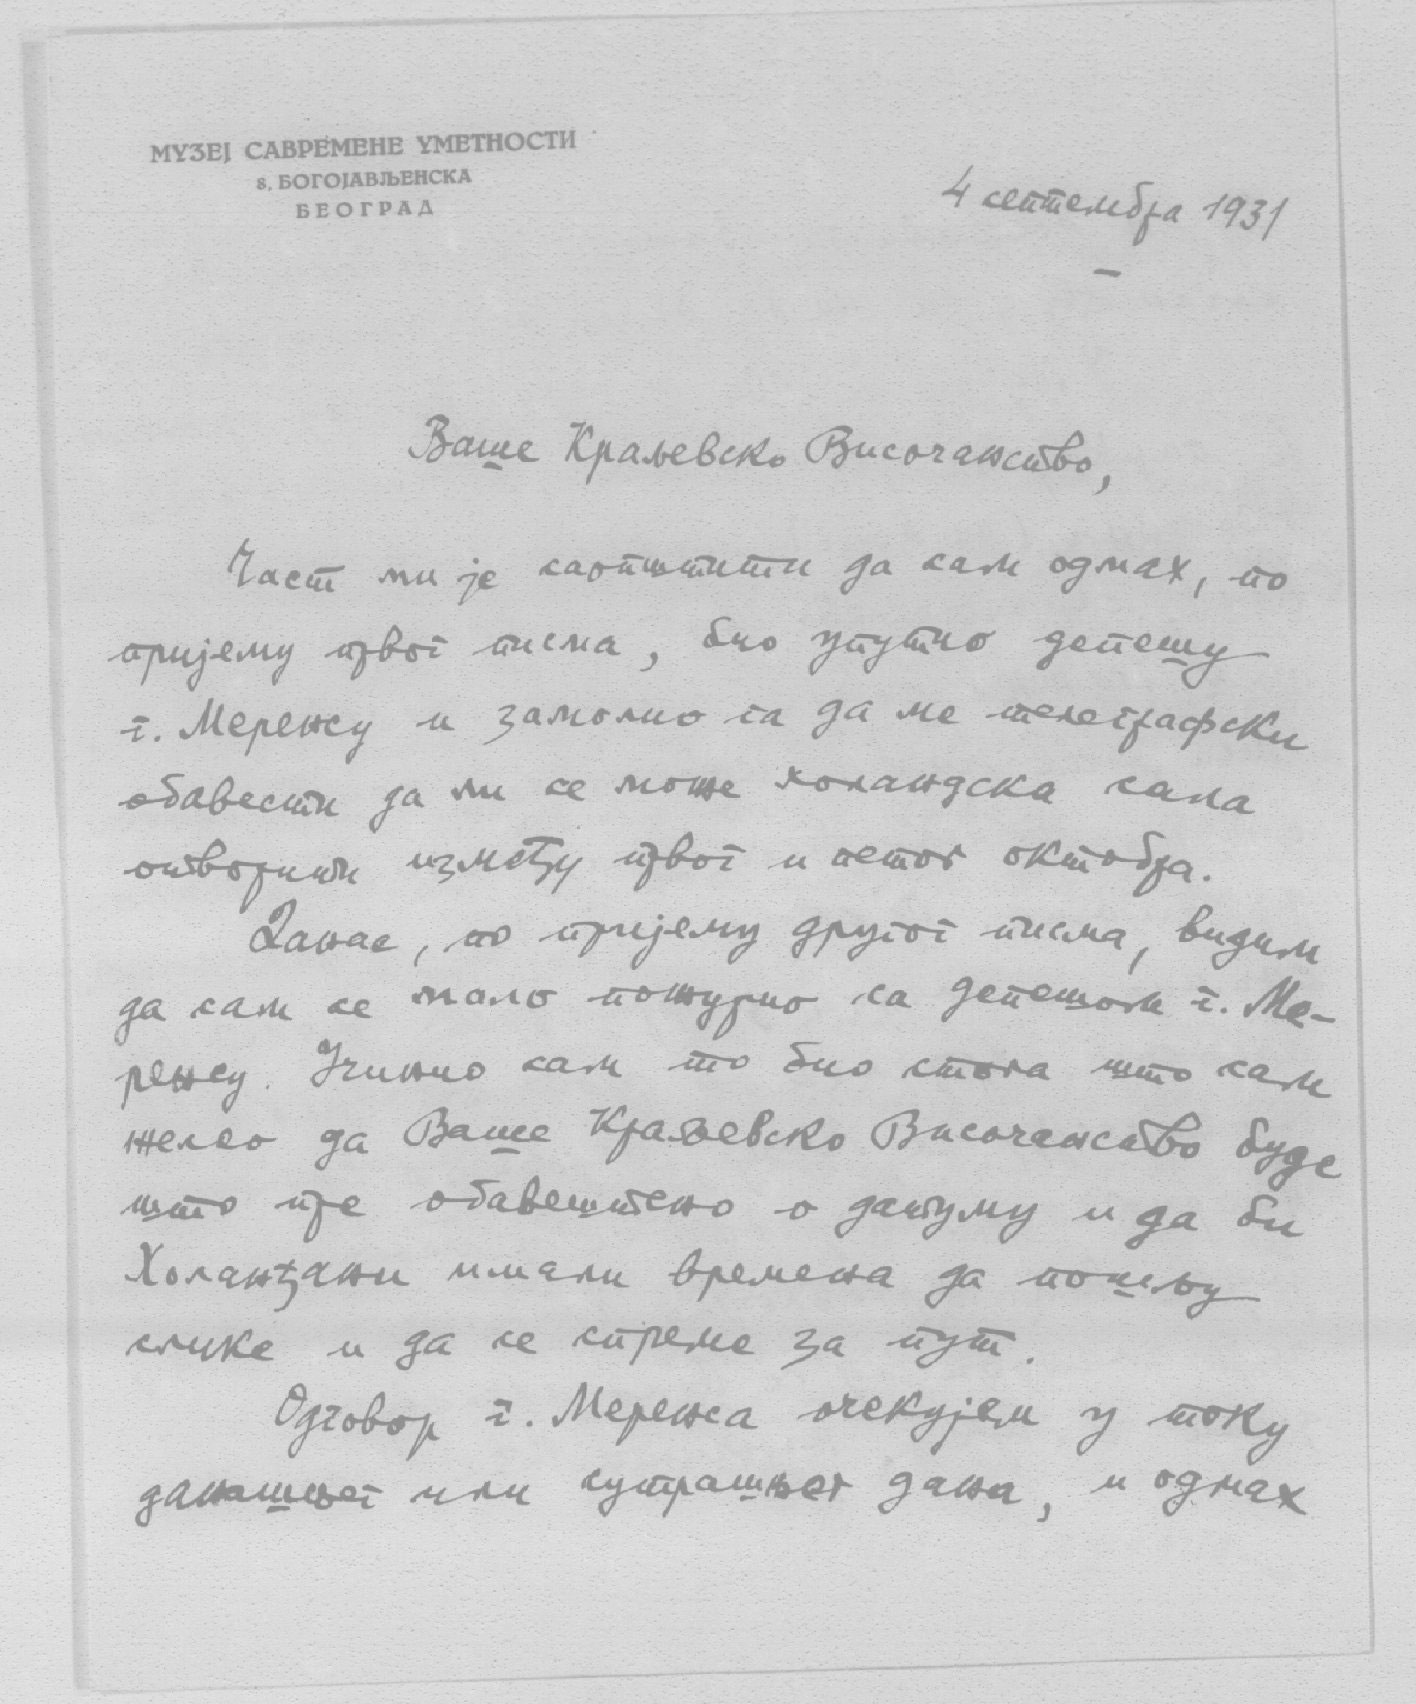 МУЗЕЈ САВРЕМЕНЕ УМЕТНОСТИ
8, БОГОЈАВЉЕНСКА
БЕОГРАД
4 септембра 1931
Ваше Краљевско Височанство,
Част ми је саопштити да сам одмах, по
пријему првог писма, био упутио депешу
г. Меренсу и замолио га да ме телеграфски
обавести да ли се може холандска сала
отворити између првог и петог октобра.
Данас, по пријему другог писма, видим
да сам се мало пожурио са депешом г. Ме-
ренсу. Учинио сам то био стога што сам
желео да Ваше Краљевско Височанство буде
што пре обавештено о датуму и да би
Холанђани имали времена да пошљу
слике и да се спреме за пут.
Одговор г. Меренса очекујем у току
данашњег или сутрашњег дана, и одмах